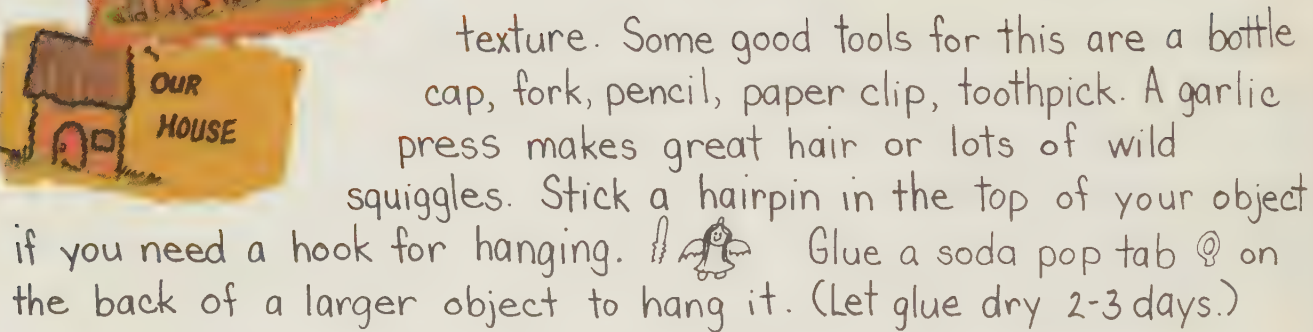 texture. Some good tools for this are a bottle
OUR
cap, fork, pencil, paper clip, toothpick. A garlic
HOUSE
press makes great hair or lots of wild
squiggles. Stick a hairpin in the top of your object
if you need a hook for hanging. Glue a soda pop tab on
the back of a larger object to hang it. (Let glue dry 2-3 days.)